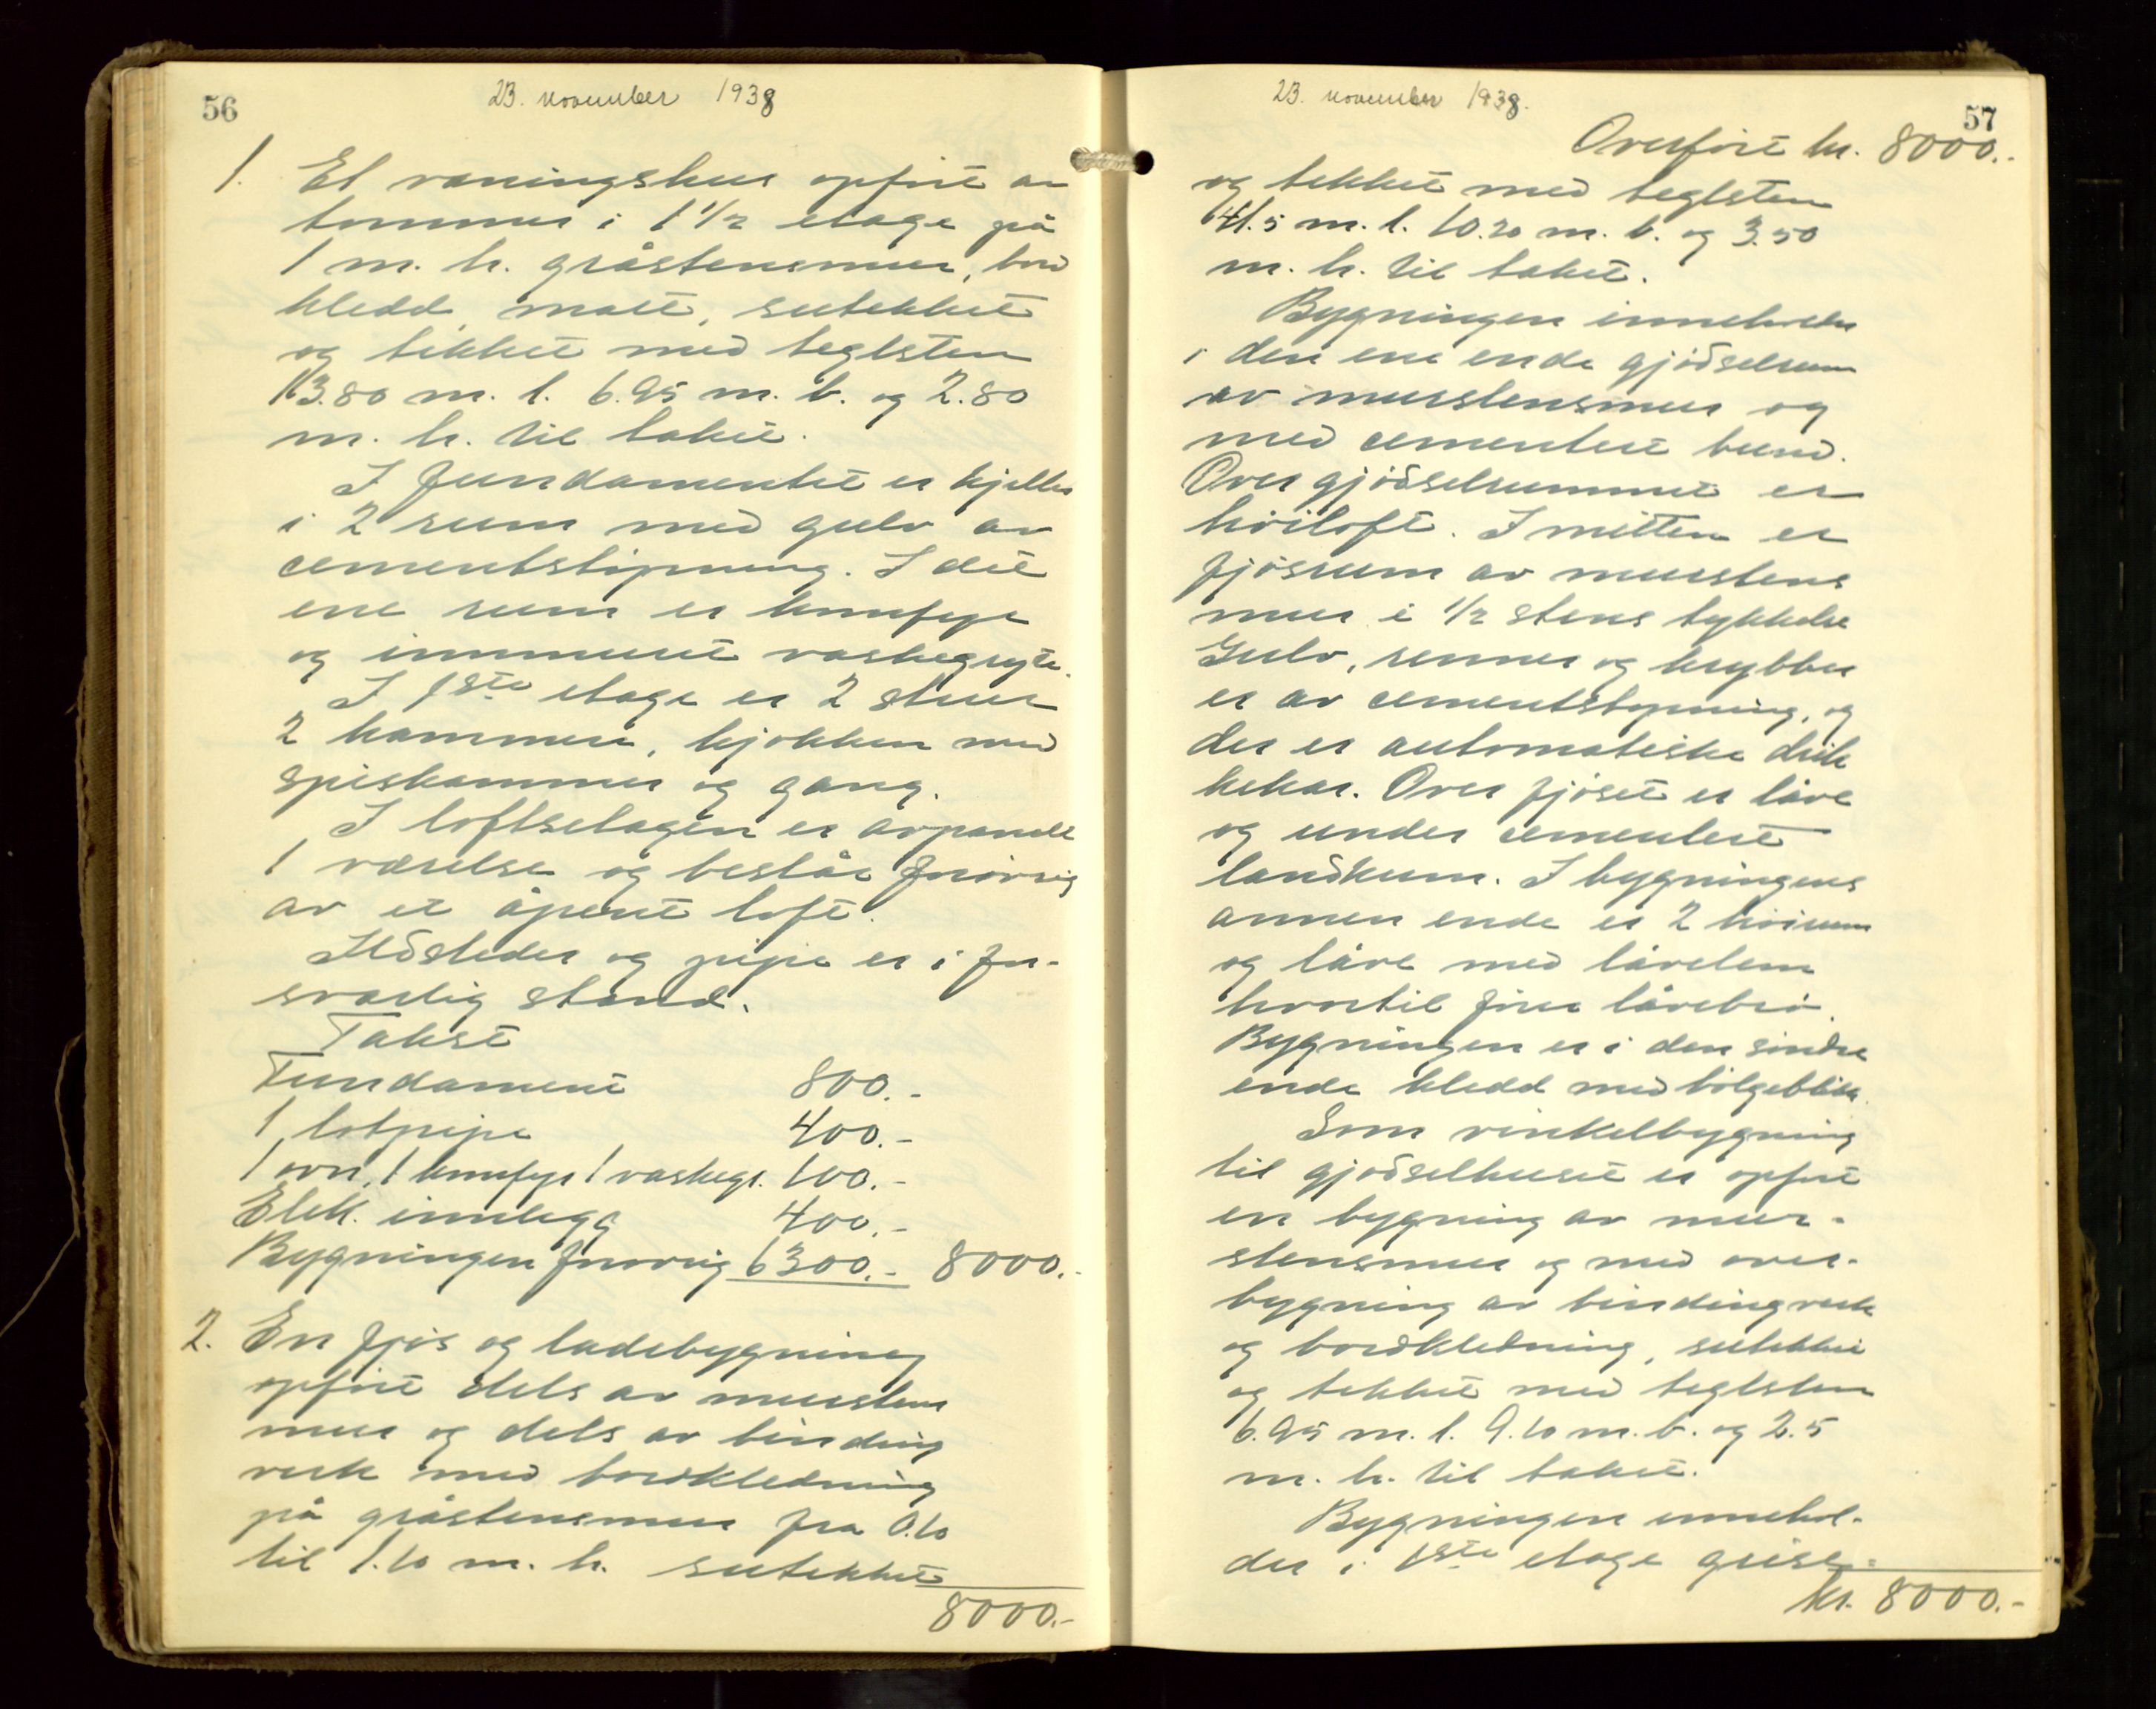 56
23. november 1938
1. Et våningshus opført av
tømmer i 1 1/2 etage på
1 m. h. gråstensmur, bord
kledd, malt, sutekket
og tekket med teglsten
13.80 m. l. 6.95 m. b. og 2.80
m. h. til taket.
I fundamentet er kjeller
i 2 rum med gulv av
cementstøpning. I det
ene rum er komfyr
og innmuret vaskegryte.
I 1ste etage er 2 stuer
2 kammere, kjøkken med
spiskammer og gang.
I loftsetagen er avpanelt
1 værelse og består forøvrig
av et åpent loft.
Ildsteder og pipe er i for-
svarlig stand.
Takst
Fundament 800.-
1 løtpipe 400.-
1 ovn, 1 komfyr 1 vaskegr. 100.-
Elek. innlegg 400.-
Bygningen forøvrig 6300.- 8000.-
2. En fjøs og ladebygning
opført dels av murstens
mur og dels av binding
verk med bordkledning
på gråstensmur fra 0.10
til 1.10 m. h. sutekket
8000.-
57
23. november 1938.
Overført kr. 8000.-
og tekket med teglsten
41.5 m. l. 10.20 m. b. og 3.50
m. h. til taket.
Bygningen inneholder
i den ene ende gjødselrum
av murstensmur og
med cementert bund.
Over gjødselrummet er
høiloft. I mitten er
fjøsrum av murstens
mur i 1/2 stens tykkelse
Gulv, renner og krybber
er av cementstøpning, og
der er automatiske drik
kekar. Over fjøset er låve
og under cementert
landkum. I bygningens
annen ende er 2 høirum
og låve med låvelem
hvortil fører låvebrø.
Bygningen er i den søndre
ende kledd med bølgeblikk.
Som vinkelbygning
til gjødselhuset er opført
en bygning av mur-
stensmur og med over-
bygning av bindingverk
og bordkledning, sutekket
og tekket med teglsten
6.95 m. l. 9.10 m. b. og 2.5
m. h. til taket.
Bygningen innehol-
der i 1ste etage grise-
kr. 8000.-